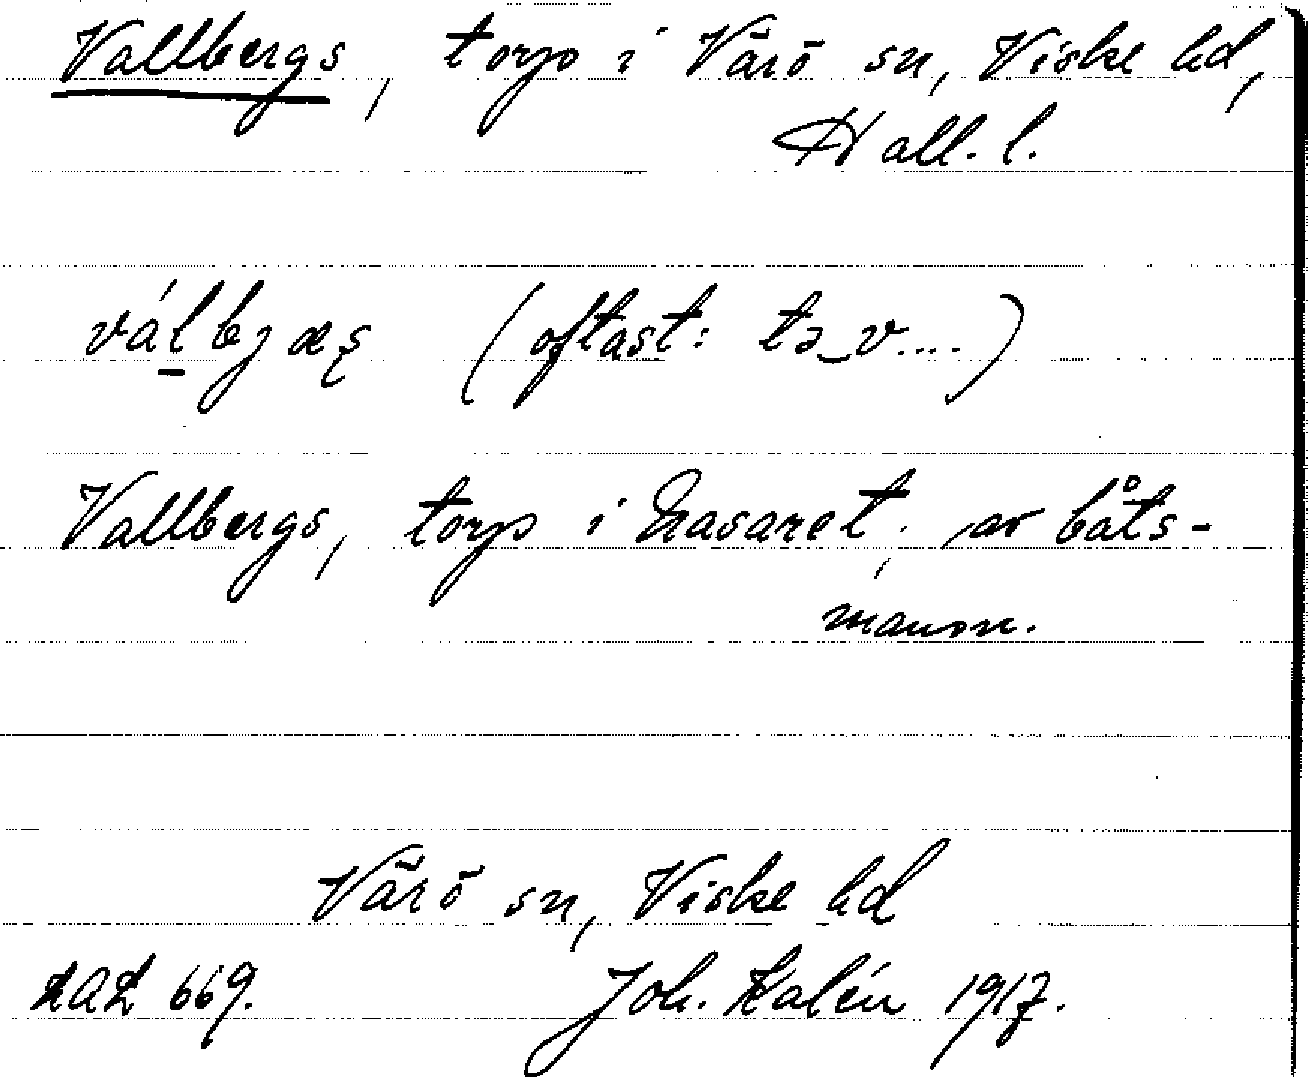 Vallbergs, torp i Värö sn, Viske hd,
Hall. l.
válbjæş (oftast: tə_v....)
Vallbergs, torp i Nasaret, av båts-
mansn.
Värö sn, Viske hd
LAL 669. Joh. Kalén 1917.